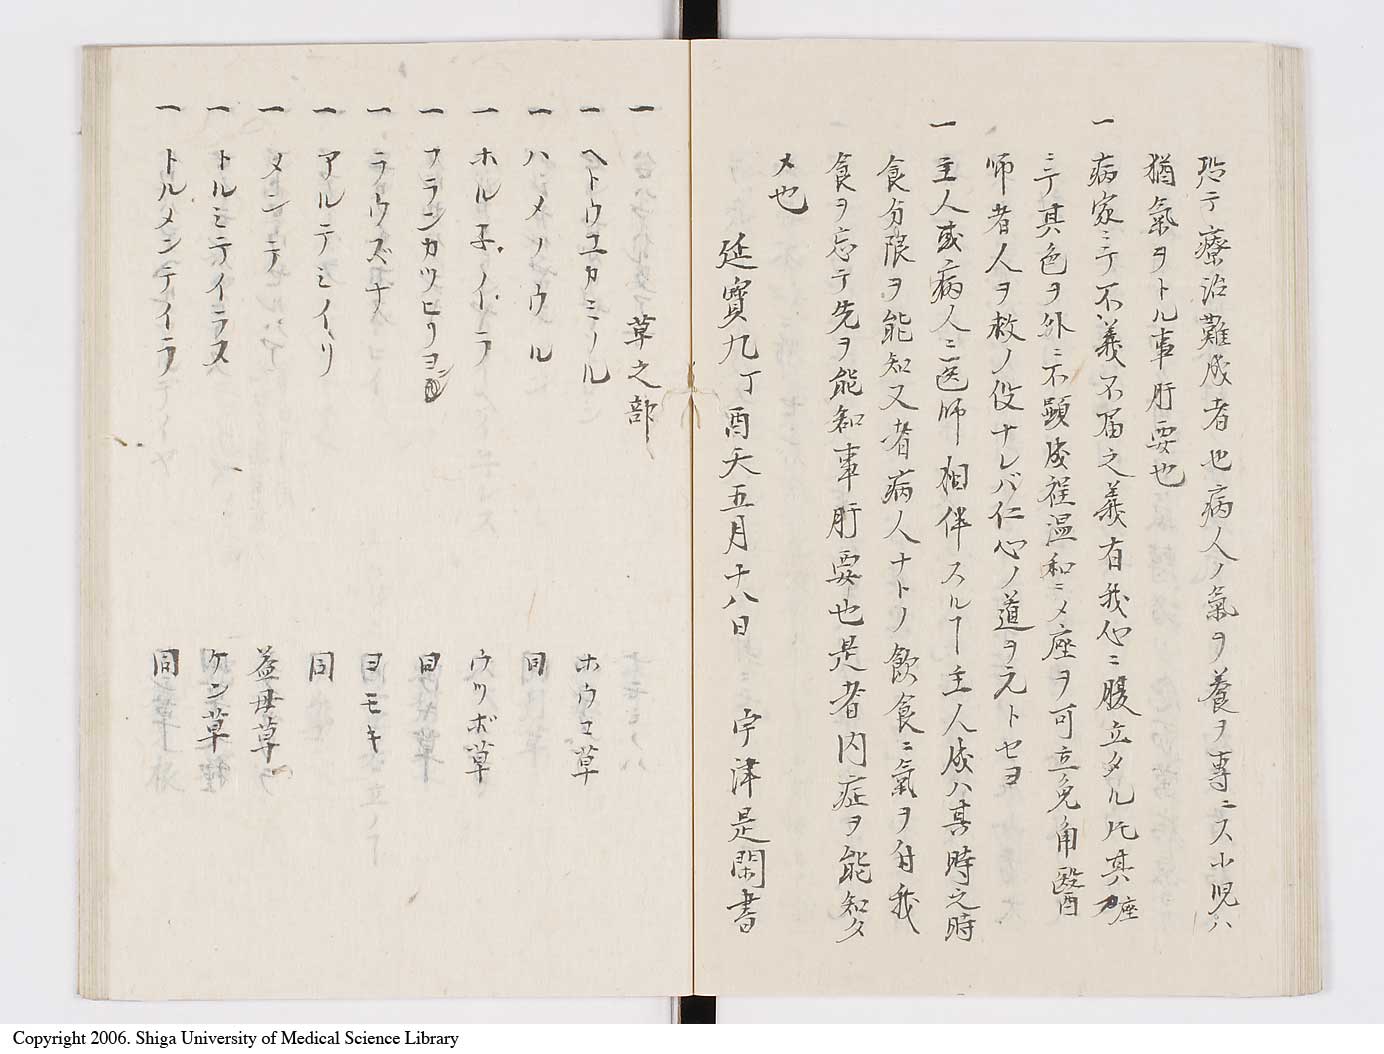 テ療治難成者也病人ノ氣ヲ養ヲ專ニス小児ハ
猶氣ヲトル事肝要也
一 病家ニテ不義不届之義有我心ニ腹立タル圧其座
ニテ其色ヲ外ニ不顕成程温和ニメ座ヲ可立免角醫
師者人ヲ救ノ役ナレバ仁心ノ道ヲ元トセヨ
一 主人或病人ニ医師相伴スルヿ主人成ハ其時之時
食分限ヲ能知又者病人ナトノ飲食ニ氣ヲ付我
食ヲ忘テ先ヲ能知事肝要也是者内症ヲ能知タ
メ也
延寶九丁酉天五月十八日 宇津是閑書
一 草之部
一 ヘトウユカミノル ホウコ草
一 ハメノウル 同
一 ホルネノイラ ウツボ草
一 フランカツヒリヨン 同
一 ラウズナ ヨモキ
一 アルテミイヽリ 同
一 メンテ 益母草
一 トルミテイラス ケン草
一 トルメンテイラ 同
Copyright 2006. Shiga University of Medical Science Library